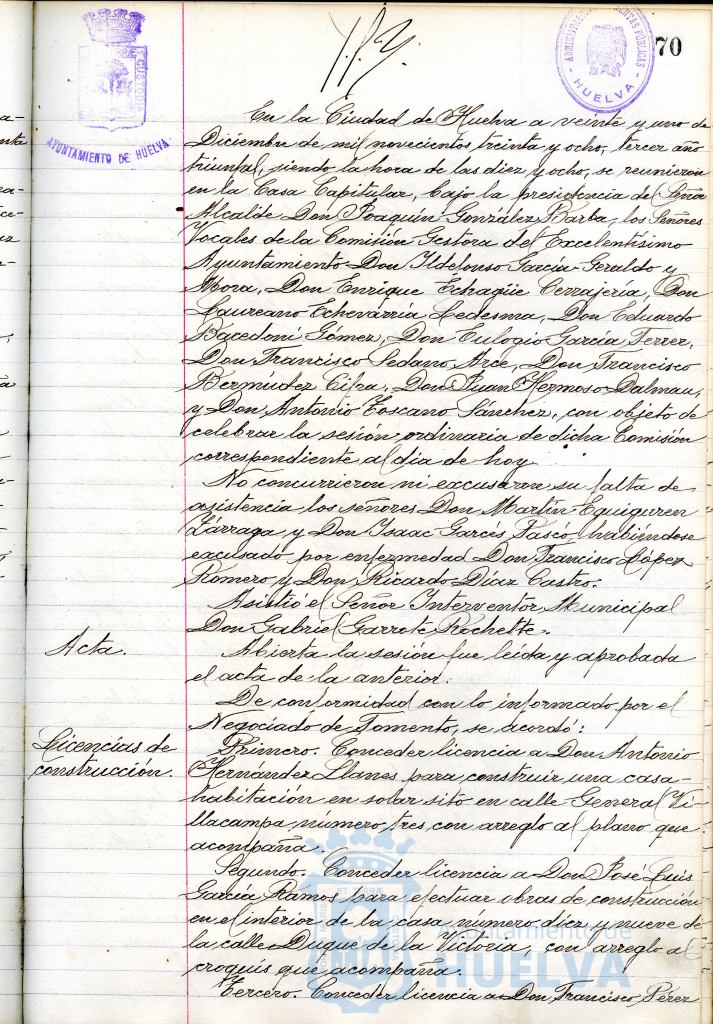 70
AYUNTAMIENTO DE HUELVA
HUELVA
En la Ciudad de Huelva a veinte y uno de
Diciembre de mil novecientos treinta y ocho, tercer año
triunfal, siendo la hora de las diez y ocho, se reunieron
en la Casa Capitular, bajo la presidencia del Señor
Alcalde Don Joaquín González Barba, los Señores
Vocales de la Comisión Gestora del Excelentísimo
Ayuntamiento Don Ildefonso García-Geraldo y
Mora, Don Enrique Echagüe Cerrajería, Don
Laureano Echevarría Ledesma, Don Eduardo
Bacedoni Gómez, Don Eulogio García Ferrer,
Don Francisco Sedano Arce, Don Francisco
Bermúdez Cifra, Don Juan Hermoso Dalmau,
y Don Antonio Toscano Sánchez, con objeto de
celebrar la sesión ordinaria de dicha Comisión
correspondiente al día de hoy.
No concurrieron ni excusaron su falta de
asistencia los señores Don Martín Eguiguren
Zárraga y Don Isaac Garcés Pascó, habiéndose
excusado por enfermedad Don Francisco López
Romero y Don Ricardo Díaz Castro.
Asistió el Señor Interventor Municipal
Don Gabriel Garrote Rochette.
Acta.
Abierta la sesión fue leída y aprobada
el acta de la anterior.
De conformidad con lo informado por el
Negociado de Fomento, se acordó:
Licencias de
construcción.
Primero. Conceder licencia a Don Antonio
Hernández Llanes para construir una casa-
habitación en solar sito en calle General Vi-
llacampa número tres con arreglo al plano que
acompaña.
Segundo. Conceder licencia a Don José Luis
García Ramos para efectuar obras de construcción
en el interior de la casa número diez y nueve de
la calle Duque de la Victoria, con arreglo al
croquis que acompaña.
Tercero. Conceder licencia a Don Francisco Pérez
Ayuntamiento de
HUELVA